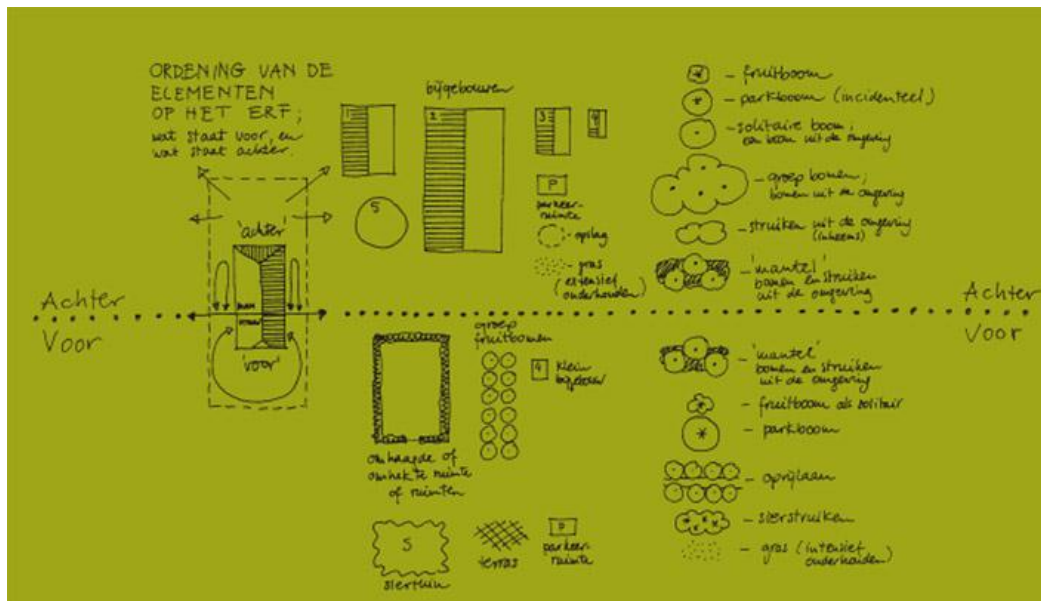 ORDENING VAN DE
ELEMENTEN
OP HET ERF;
wat staat voor, en
wat staat achter.
'achter'
'voor'
Achter
Voor
bijgebouwen
1
2
3
4
5
P
parkeer-
ruimte
- opslag
- gras
(extensief
onderhouden)
- fruitboom
- parkboom (incidenteel)
- solitaire boom,
een boom uit de omgeving
- groep bomen,
bomen uit de omgeving
- struiken uit de omgeving
(inheems)
- 'mantel'
bomen en struiken
uit de omgeving
Achter
Voor
omhaagde of
omhekte ruimte
of ruimten
groep
fruitbomen
4
klein
bijgebouw
S
siertuin
terras
P
parkeer-
ruimte
- 'mantel'
bomen en struiken
uit de omgeving
- fruitboom als solitair
- parkboom
- oprijlaan
- sierstruiken
- gras (intensief
onderhouden)